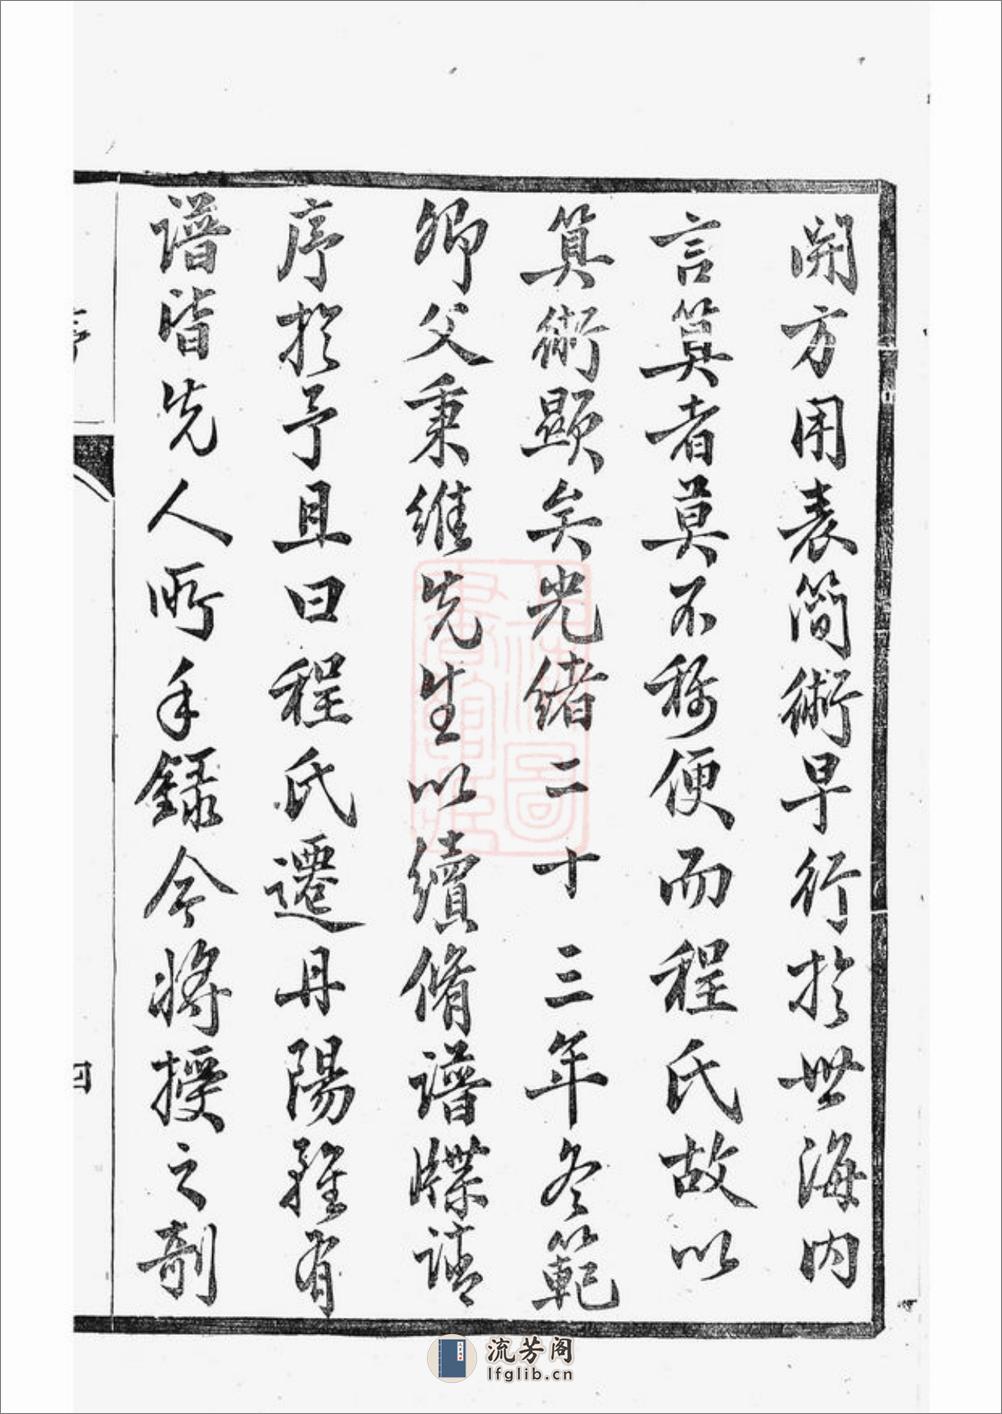 開方用表簡術早行於世海内
言算者莫不称便而程氏故以
算術顯矣光緒二十三年冬範
卿父秉維先生以續脩譜牒請
序於予且曰程氏遷丹陽雖有
譜皆先人所手錄今將授之剞
序
四
流芳阁
lfglib.cn